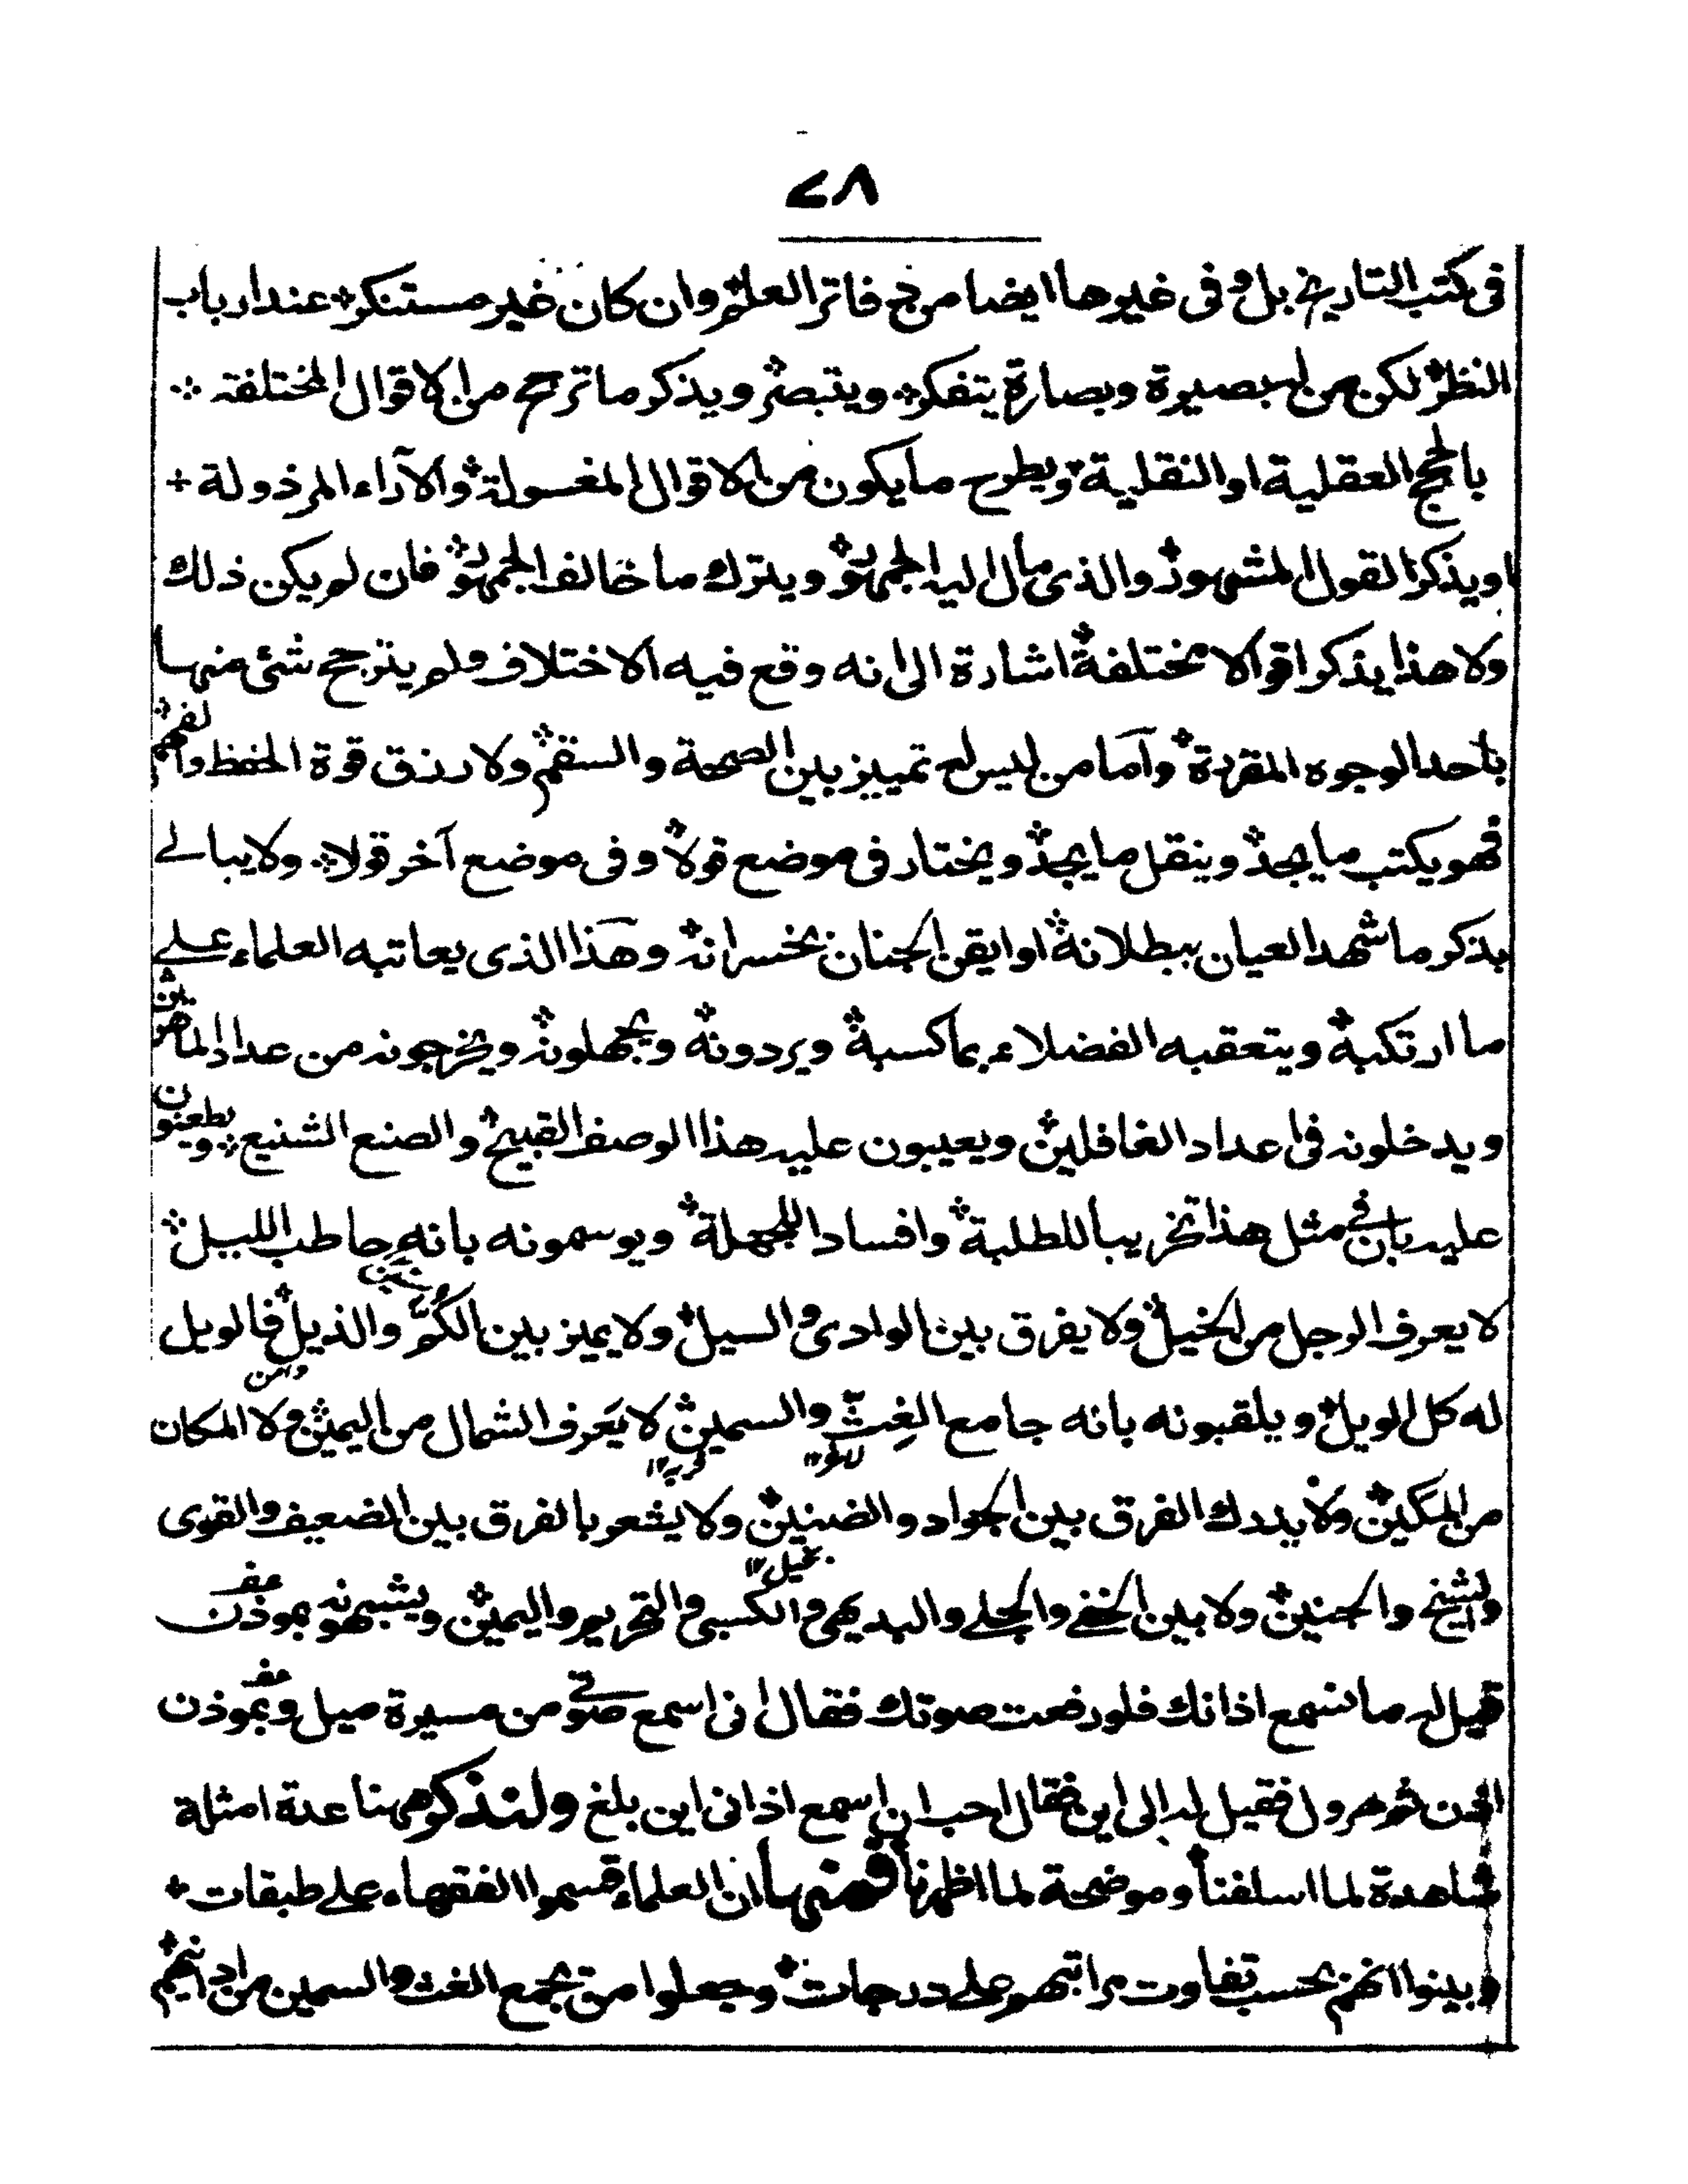 ٢٨
فى كتب التاريخ بل وفى غيرها ايضا من دفاتر العلم وان كان غير مستنكر عند ارباب
النظر لكن من له بصيرة وبصارة يتفكر ويتبصر ويذكر ما ترجح من الاقوال المختلفة
بالحجج العقلية او النقلية ويطرح ما يكون من الاقوال المغسولة والآراء المرذولة
او يذكر القول المشهور والذى مال اليه الجمهور ويترك ما خالف الجمهور فان لم يكن ذلك
ولا هذا يذكر اقوالا مختلفة اشارة الى انه وقع فيه الاختلاف ولم يترجح شئ منها
باحد الوجوه المقررة وأما من ليس له تمييز بين الصحة والسقم ولا رزق قوة الحفظ والفهم
فهو يكتب ما يجد وينقل ما يجد ويختار فى موضع قولا وفى موضع آخر قولا ولا يبالے
بذكر ما شهد العيان ببطلانه او ايقن الجنان بخسرانه وهذا الذى يعاتبه العلماء علے
ما ارتكبه ويتعقبه الفضلاء بما كسبه ويردونه ويجهلونه ويخرجونه من عداد الماهرين
ويدخلونه فى اعداد الغافلين ويعيبون عليه هذا الوصف القبيح والصنع الشنيع ويطعنون
عليه بان فے مثل هذا تخريبا للطلبة وافسادا للجهلة ويوسمونه بانه حاطب الليل
لا يعرف الرجل من الخيل ولا يفرق بين الوادى والسيل ولا يميز بين الكم والذيل فالويل
له كل الويل ويلقبونه بانه جامع الغث والسمين لا يعرف الشمال من اليمين ولا المكان
من المكين ولا يدرك الفرق بين الجواد والضنين ولا يشعر بالفرق بين الضعيف والقوى
والشيخ والجنين ولا بين الخفے والجلے والبديهى والكسبى والتحرير واليمين ويشبهونه بموذن
قيل له ما نسمع اذانك فلو رفعت صوتك فقال انى اسمع صوتے من مسيرة ميل وبموذن
اذن ثم هرول فقيل له الى اين فقال احب ان اسمع اذانى اين بلغ ولنذكر ههنا عدة امثلة
شاهدة لما اسلفنا وموضحة لما اظهرنا فمنها ان العلماء قسموا الفقهاء علے طبقات
وبينوا انهم بحسب تفاوت مراتبهم على درجات وجعلوا من يجمع الغث والسمين من ادانيهم